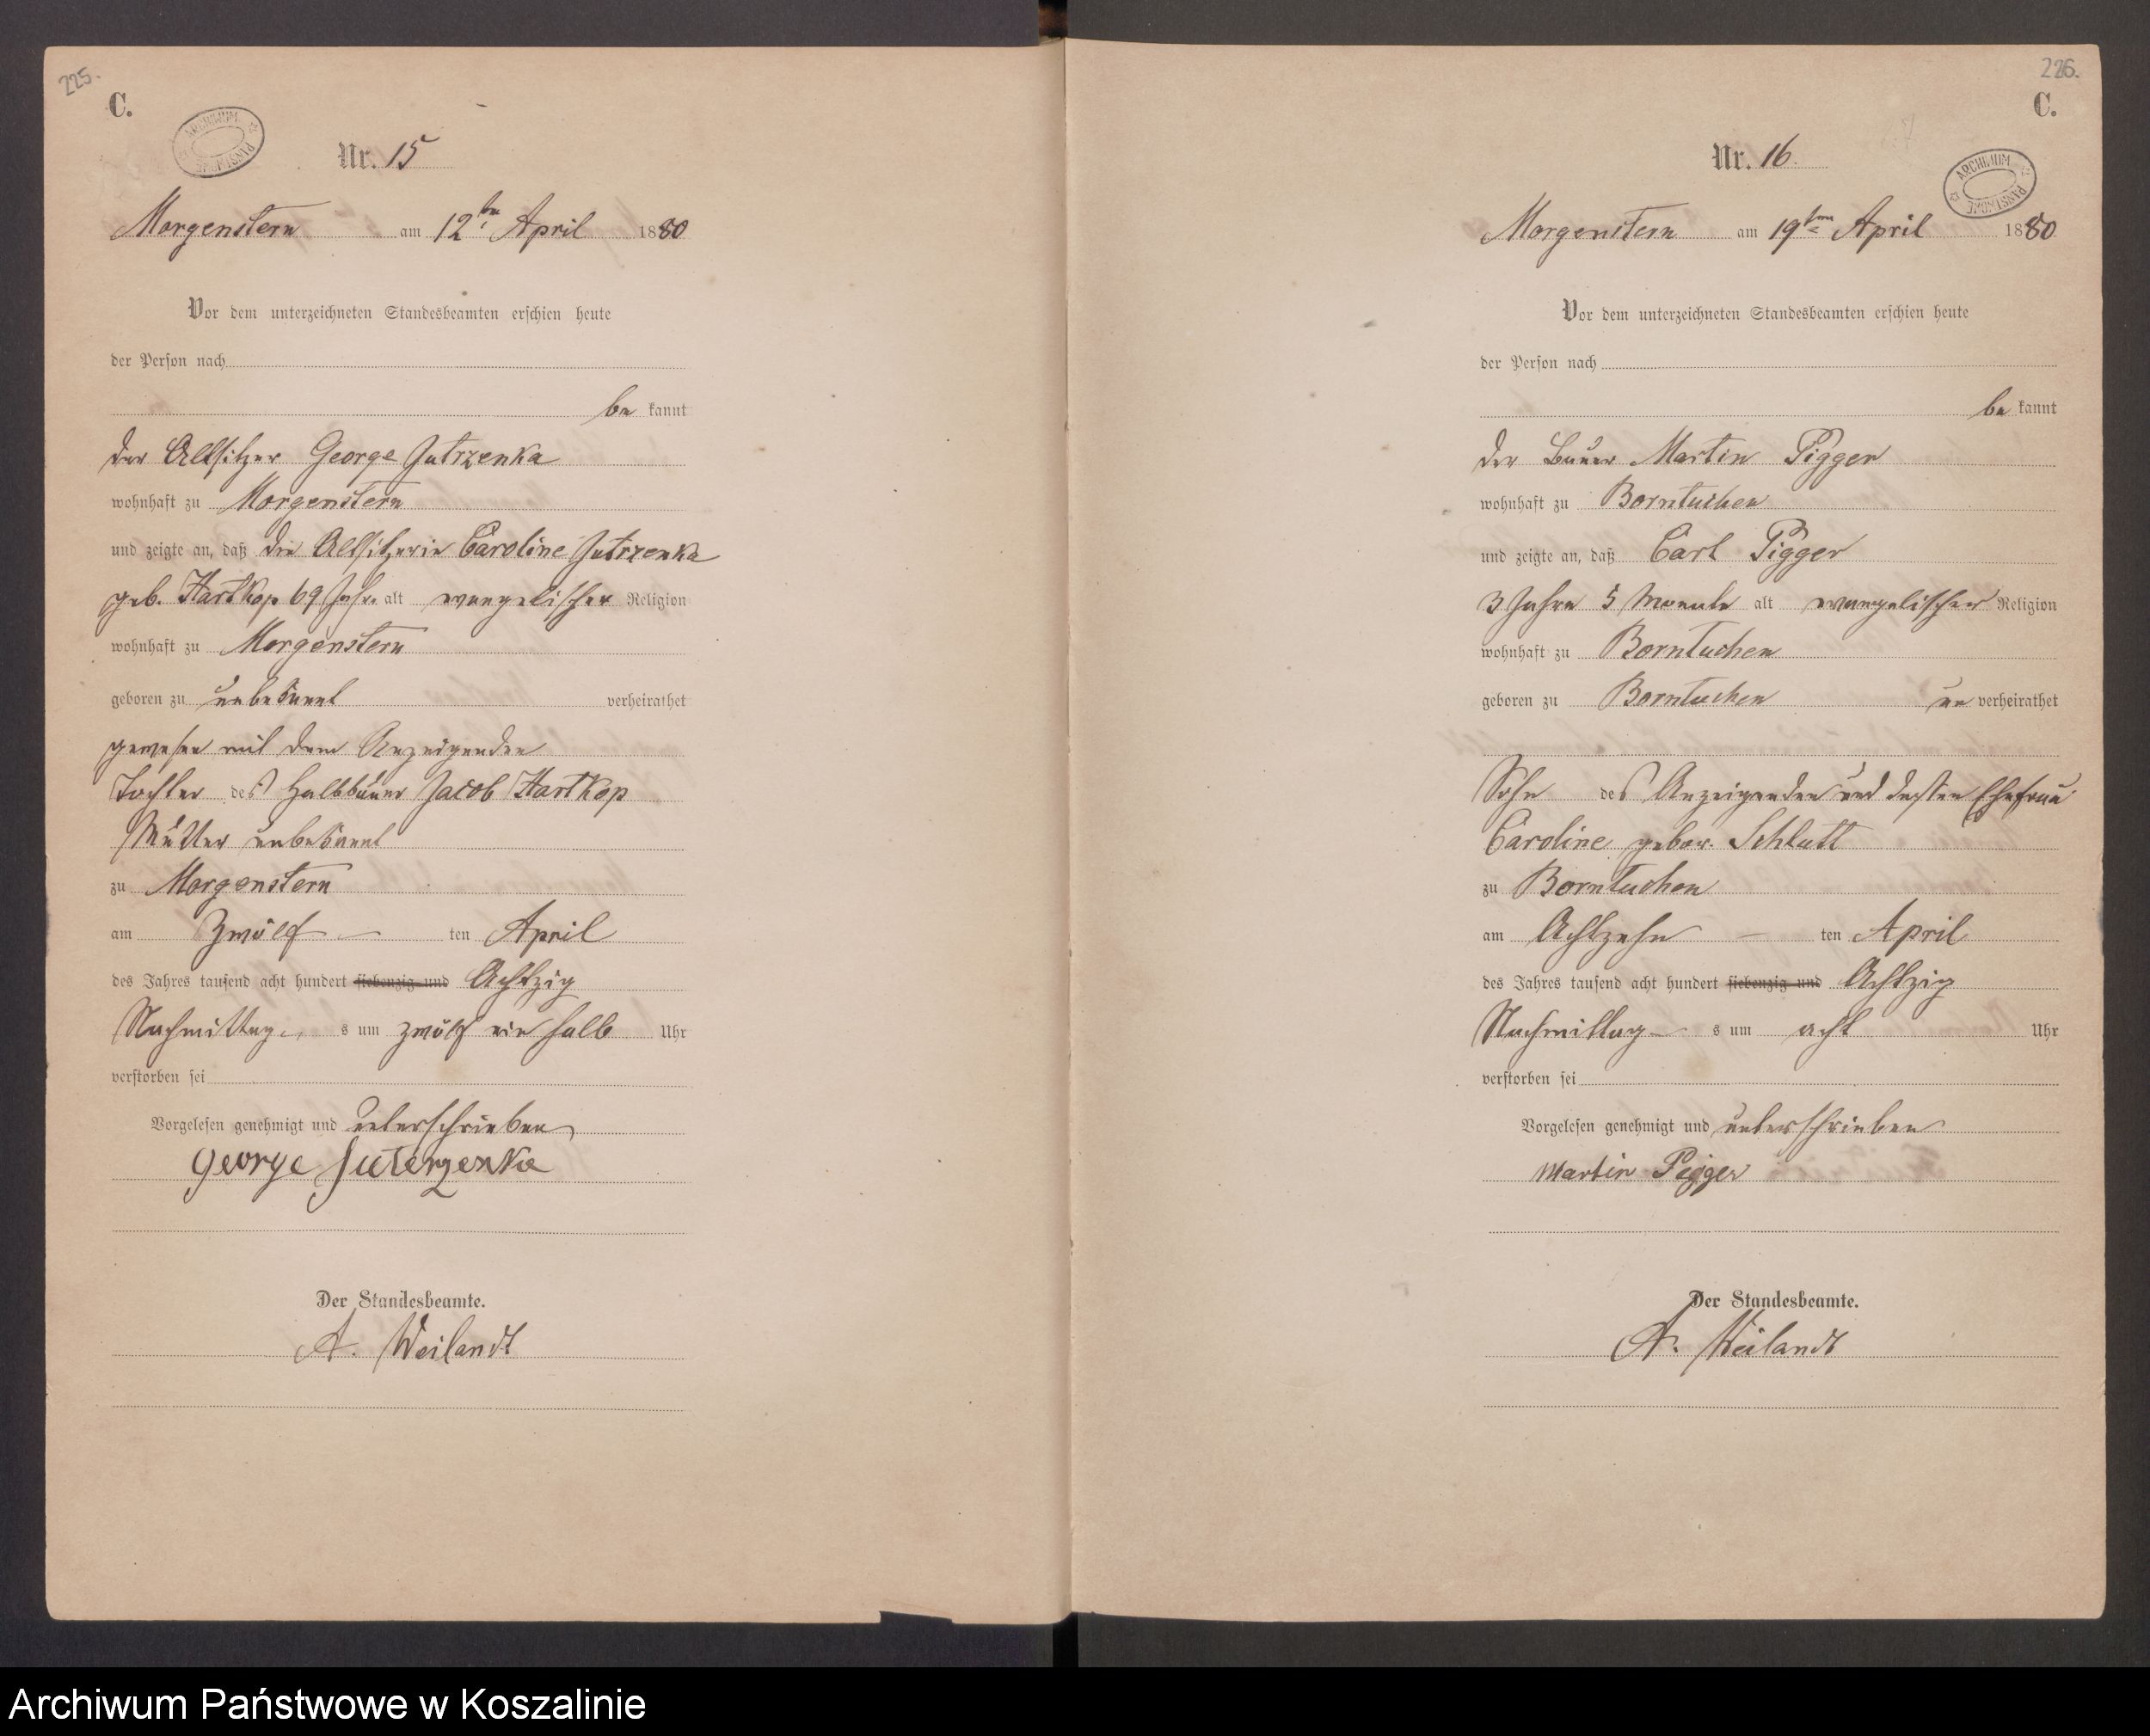 225.
C.
ARCHIWUM PAŃSTWOWE
Nr. 15
Morgenstern am 12ten April 1880
Vor dem unterzeichneten Standesbeamten erschien heute
der Person nach
be kannt
der Altsitzer George Jutrzenka
wohnhaft zu Morgenstern
und zeigte an, daß die Altsitzerin Caroline Jutrzenka
geb. Hartkop 69 Jahr alt evangelischer Religion
wohnhaft zu Morgenstern
geboren zu unbekannt verheirathet
gewesen mit dem Anzeigenden
Tochter des Halbbauer Jacob Hartkop
Mutter unbekannt
zu Morgenstern
am Zwölf — ten April
des Jahres tausend acht hundert siebenzig und Achtzig
Nachmittag s um zwölf ein halb Uhr
verstorben sei
Vorgelesen genehmigt und unterschrieben
George Juterzenka
Der Standesbeamte.
A. Weilandt
226.
C.
ARCHIWUM PAŃSTWOWE
Nr. 16.
Morgenstern am 19ten April 1880
Vor dem unterzeichneten Standesbeamten erschien heute
der Person nach
be kannt
der Bauer Martin Pigger
wohnhaft zu Borntuchen
und zeigte an, daß Carl Pigger
3 Jahre 5 Monate alt evangelischer Religion
wohnhaft zu Borntuchen
geboren zu Borntuchen un verheirathet
Sohn des Anzeigenden und dessen Ehefrau
Caroline gebor. Schlutt
zu Borntuchen
am Achtzehn — ten April
des Jahres tausend acht hundert siebenzig und Achtzig
Nachmittag s um acht Uhr
verstorben sei
Vorgelesen genehmigt und unterschrieben
Martin Pigger
Der Standesbeamte.
A. Weilandt
Archiwum Państwowe w Koszalinie